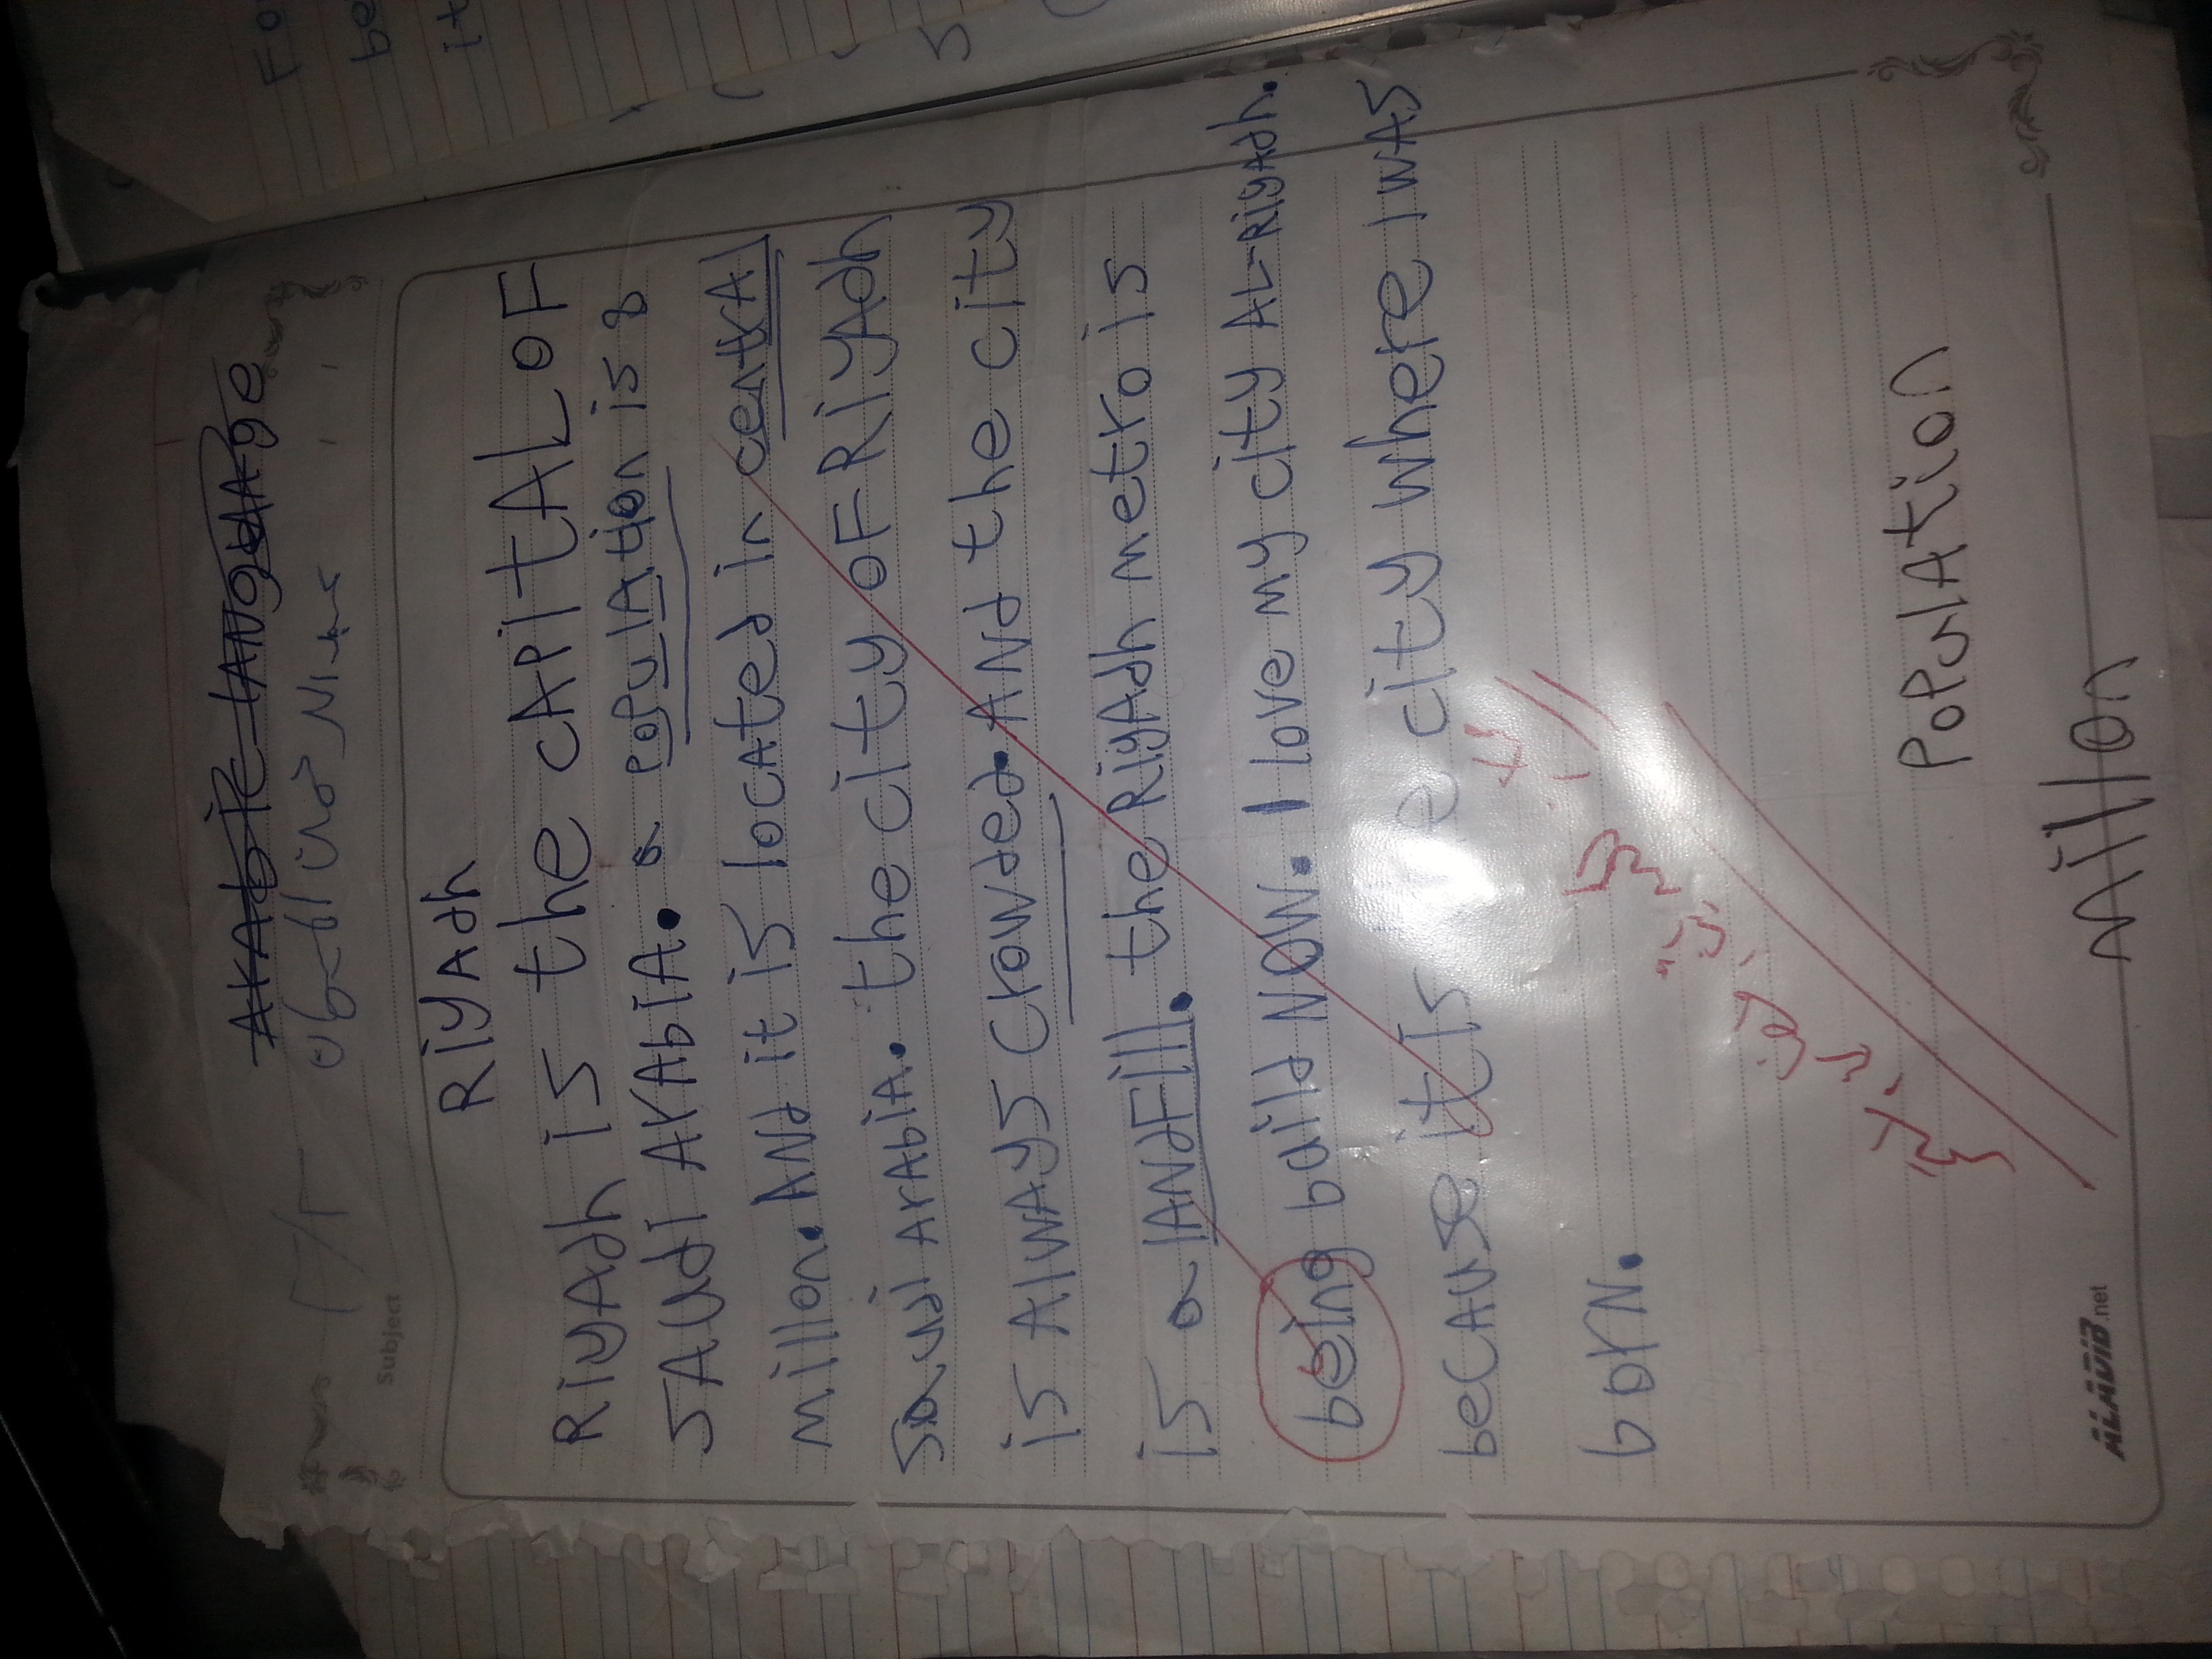 Arabic language
Subject
RiyAdh
RiyAdh is the cAPitAL OF
SAUdI ArAbiA. a populAtion is 8
millon. ANd it is locAted in centrAl
Saudi ArAbiA. the city OF RiyAdh
is AlwAys crowded. ANd the city
is a lANdFill. the RiyAdh metro is
being baild NOW. I love my city AL-RiyAdh.
becAuse it is e city where I wAs
borN.
PopulAtion
millon
ALADIB.net
Fo
be
it
S